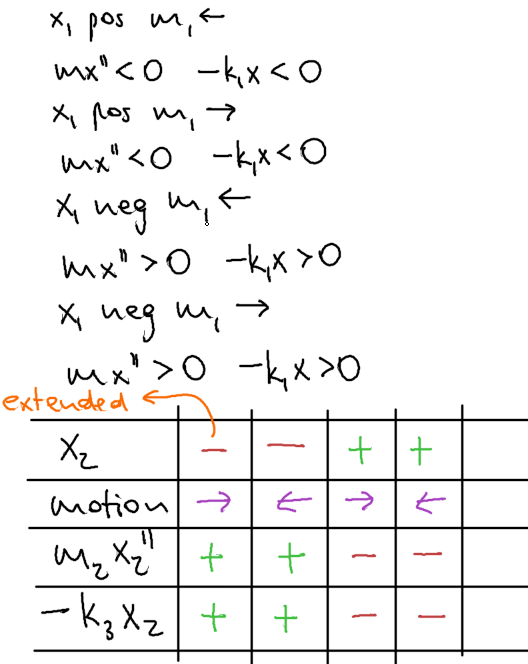 x₁ pos m₁ ←
mx" < 0 -k₁x < 0
x₁ pos m₁ →
mx" < 0 -k₁x < 0
x₁ neg m₁ ←
mx" > 0 -k₁x > 0
x₁ neg m₁ →
mx" > 0 -k₁x > 0
extended ←
x₂ − − + +
motion → ← → ←
m₂x₂" + + − −
-k₃x₂ + + − −